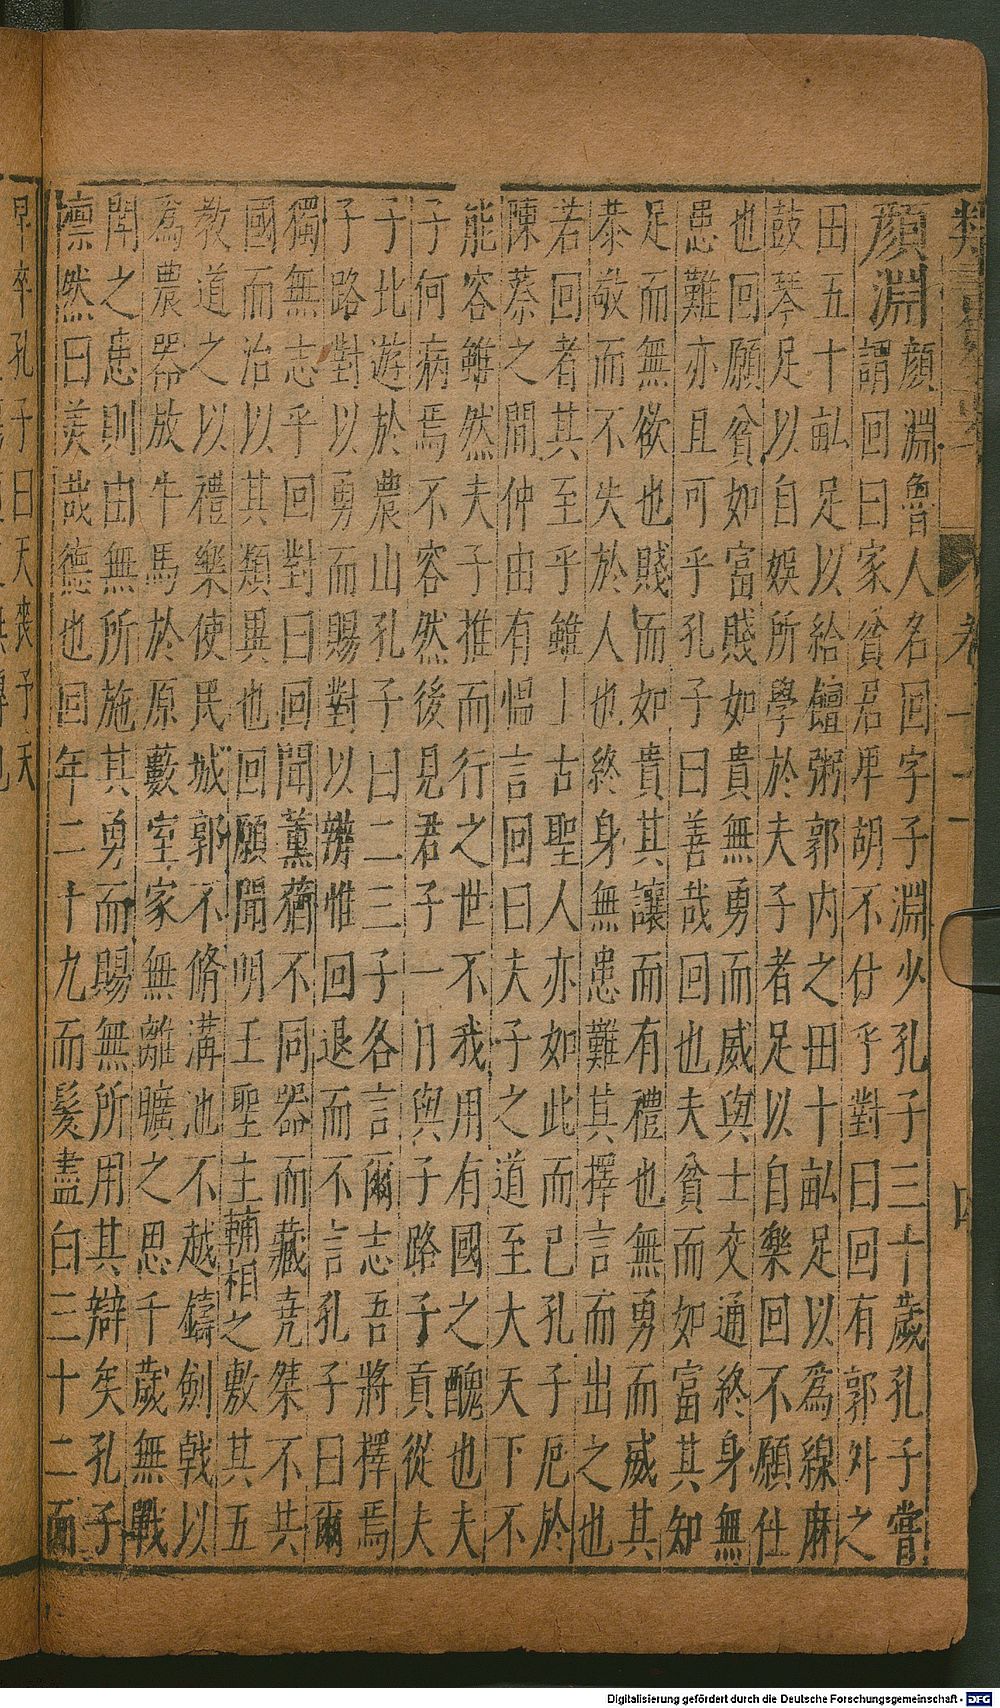 顏淵
顏淵魯人名回字子淵少孔子三十歲孔子嘗
謂回曰家貧居卑胡不仕乎對曰回有郭外之
田五十畝足以給饘粥郭內之田十畝足以爲線麻
鼓琴足以自娛所學於夫子者足以自樂回不願仕
也回願貧如富賤如貴無勇而威與士交通終身無
患難亦且可乎孔子曰善哉回也夫貧而如富其知
足而無欲也賤而如貴其讓而有禮也無勇而威其
恭敬而不失於人也終身無患難其擇言而出之也
若回者其至乎雖上古聖人亦如此而已孔子厄於
陳蔡之間仲由有慍言回曰夫子之道至大天下不
能容雖然夫子推而行之世不我用有國之醜也夫
子何病焉不容然後見君子一日與子路子貢從夫
子北遊於農山孔子曰二三子各言爾志吾將擇焉
子路對以勇而賜對以辨惟回退而不言孔子曰爾
獨無志乎回對曰回聞薰蕕不同器而藏堯桀不共
國而治以其類異也回願聞明王聖主輔相之敷其五
教道之以禮樂使民城郭不脩溝池不越鑄劍戟以
爲農器放牛馬於原藪室家無離曠之思千歲無戰
鬪之患則由無所施其勇而賜無所用其辯矣孔子
凛然曰美哉德也回年二十九而髮盡白三十二而
早卒孔子曰天喪予天
Digitalisierung gefördert durch die Deutsche Forschungsgemeinschaft - DFG